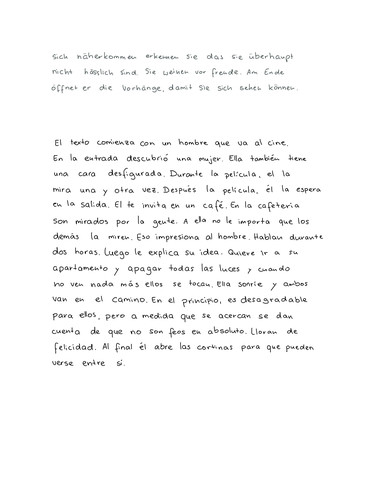 sich näherkommen erkennen sie das sie überhaupt
nicht hässlich sind. Sie weinen vor freude. Am Ende
öffnet er die Vorhänge, damit sie sich sehen können.
El texto comienza con un hombre que va al cine.
En la entrada descubrió una mujer. Ella también tiene
una cara desfigurada. Durante la película, el la
mira una y otra vez. Después la película, él la espera
en la salida. El te invita en un café. En la cafetería
son mirados por la gente. A ella no le importa que los
demás la miren. Eso impresiona al hombre. Hablan durante
dos horas. Luego le explica su idea. Quiere ir a su
apartamento y apagar todas las luces y cuando
no ven nada más ellos se tocan. Ella sonríe y ambos
van en el camino. En el principio, es desagradable
para ellos, pero a medida que se acercan se dan
cuenta de que no son feos en absoluto. Lloran de
felicidad. Al final él abre las cortinas para que pueden
verse entre sí.